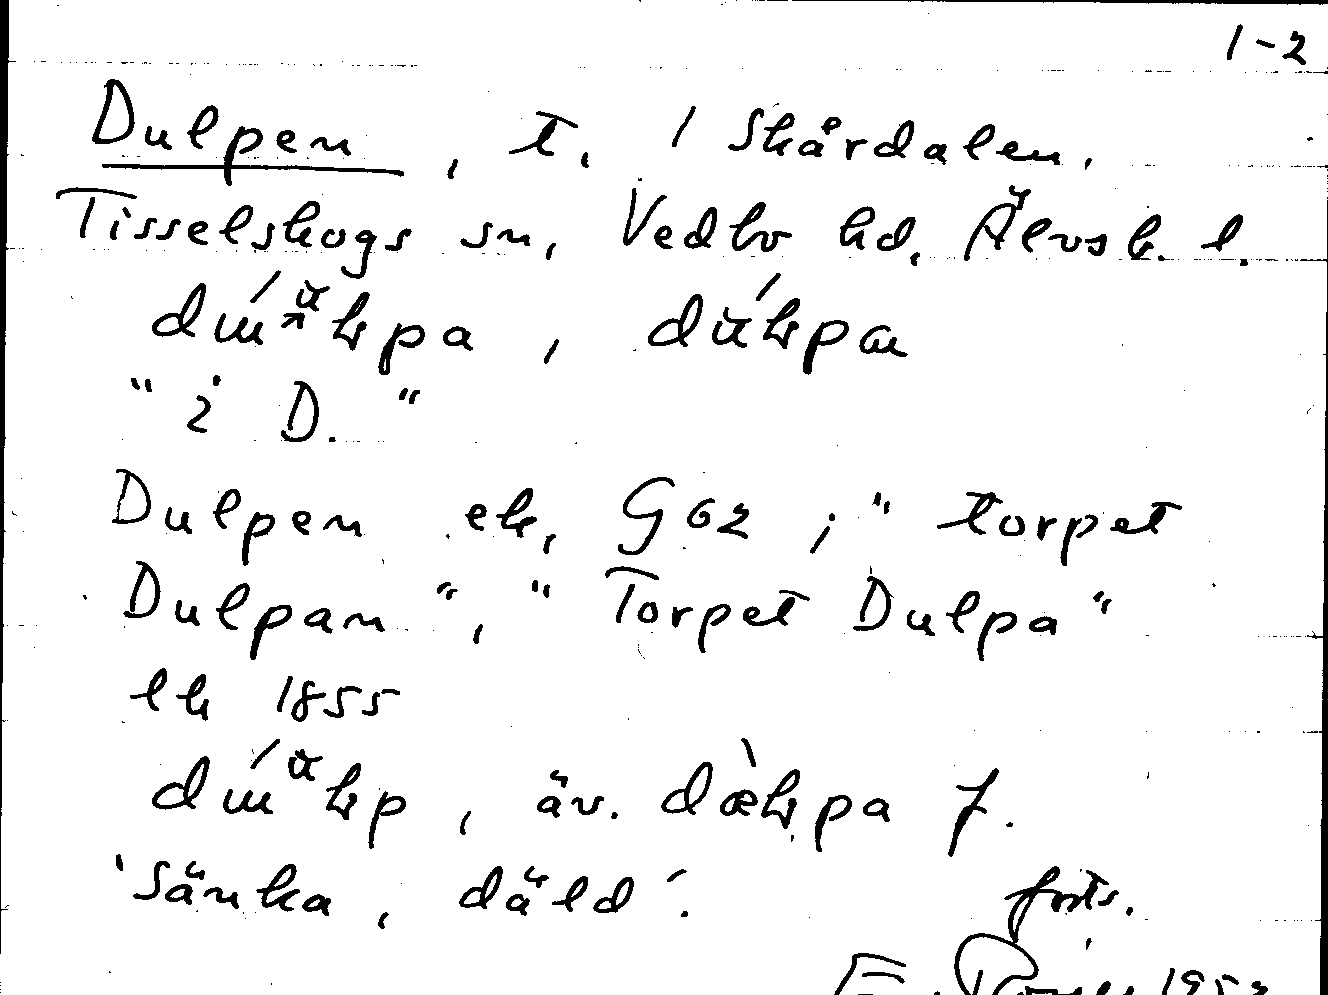 1-2
Dulpen, t. / Skårdalen,
Tisselskogs sn, Vedbo hd, Älvsb. l.
" i D. "
Dulpen ek, G62 ; " torpet
Dulpan ", " Torpet Dulpa "
lk 1855
, äv. f.
'sänka, däld'.
forts.
1953